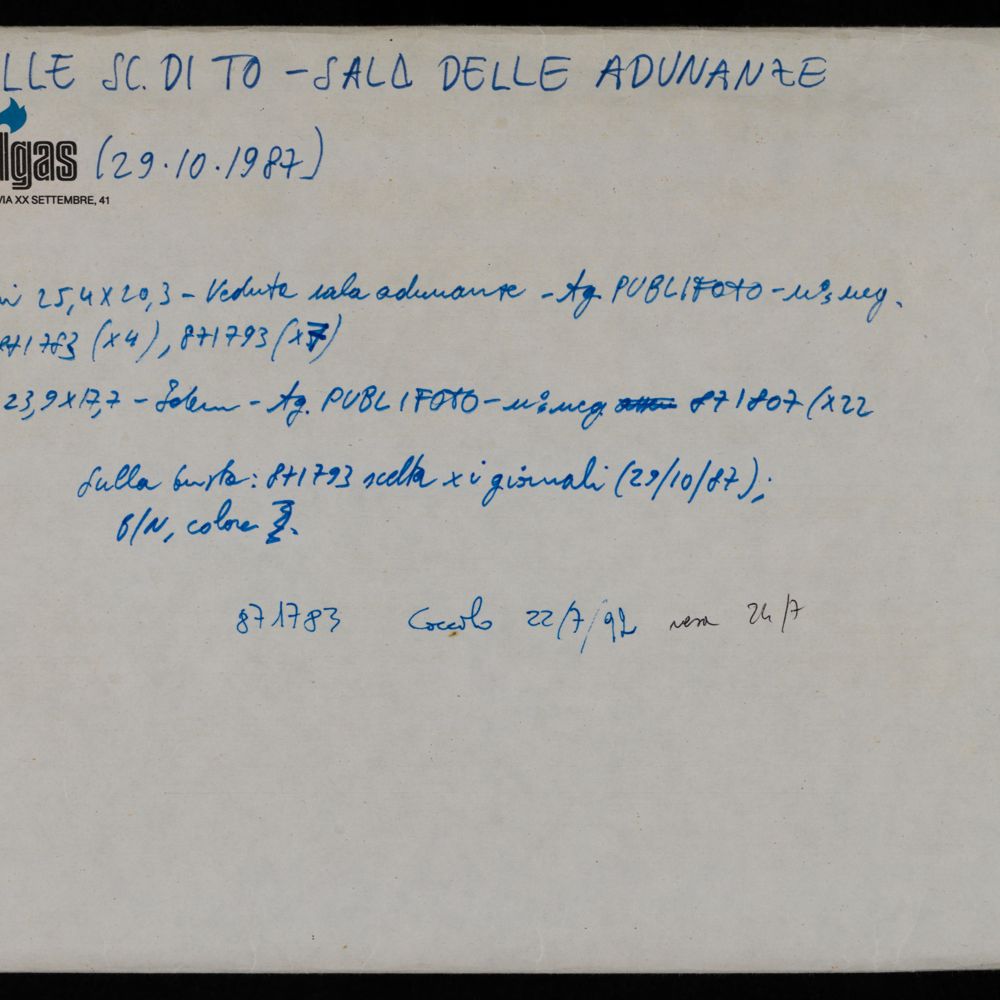 LLE SC. DI TO - SALA DELLE ADUNANZE
lgas (29.10.1987)
VIA XX SETTEMBRE, 41
25,4x20,3 - Veduta sala adunanze - Ag. PUBLIFOTO - n°s neg.
871783 (x4), 871793 (x7)
23,9x17,7 - Idem - Ag. PUBLIFOTO - n°s neg 871807 (x22
Sulla busta: 871793 scelta x i giornali (29/10/87);
B/N, colore
871783 Coccolo 22/7/92 resa 24/7